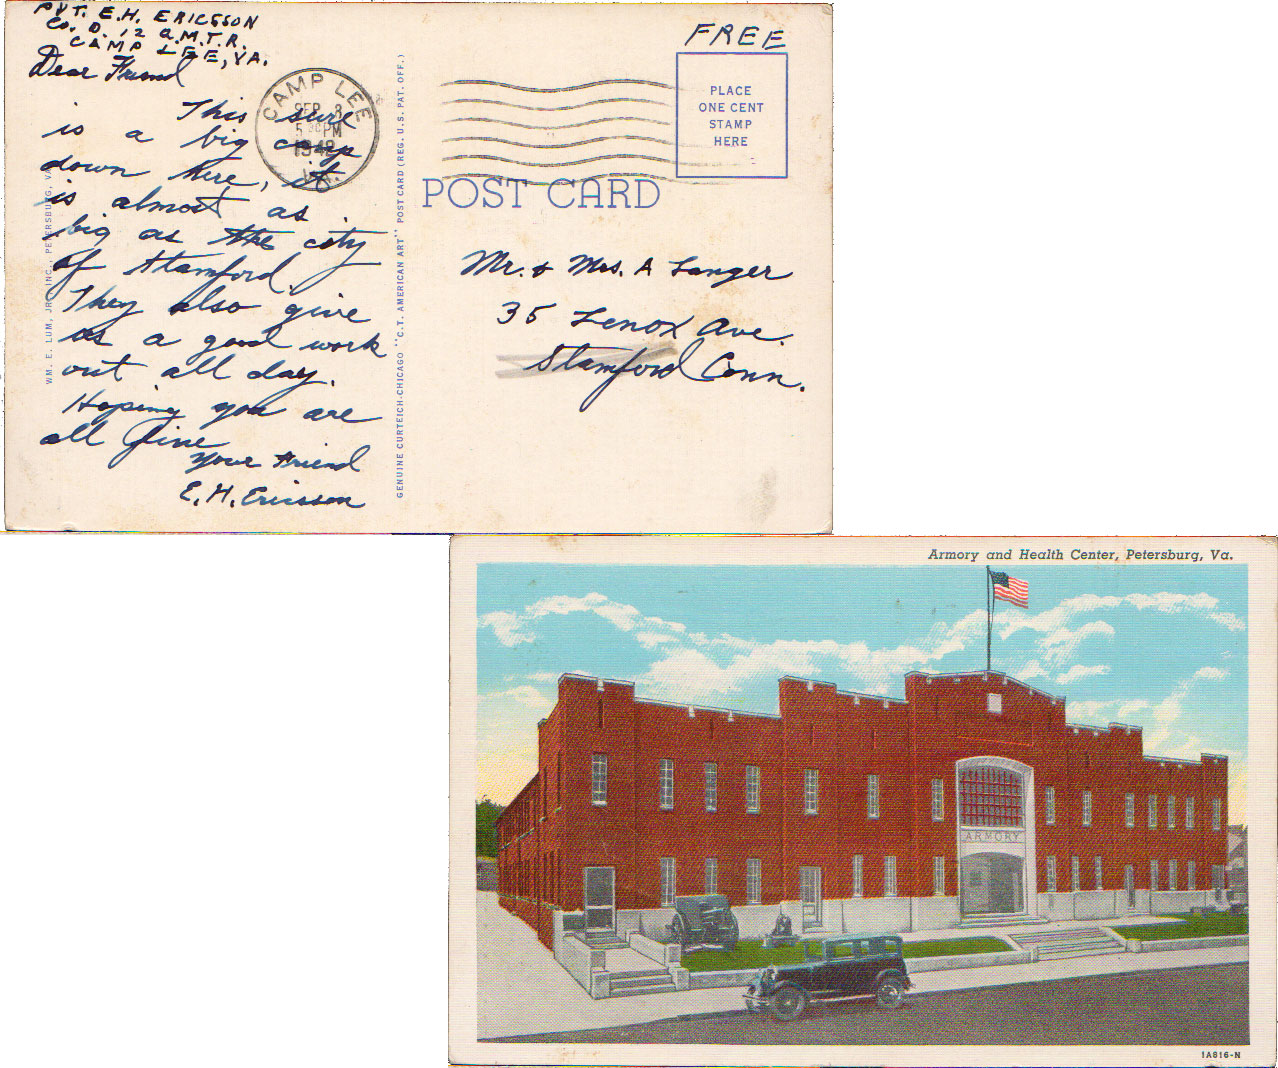 PVT. E.H. ERICSSON
Co. D. 12 Q.M.T.R.
CAMP LEE, VA.
Dear Friend
This sure
is a big camp
down here, it
is almost as
big as the city
of Stamford.
They also give
us a good work
out all day.
Hoping you are
all fine
Your Friend
E. H. Ericsson
CAMP LEE
SEP 3
5 PM
1942
VA.
WM. E. LUM, JR., INC., PETERSBURG, VA.
GENUINE CURTEICH-CHICAGO "C.T. AMERICAN ART" POST CARD (REG. U.S. PAT. OFF.)
FREE
PLACE
ONE CENT
STAMP
HERE
POST CARD
Mr. & Mrs. A Langer
35 Lenox Ave.
Stamford Conn.
Armory and Health Center, Petersburg, Va.
ARMORY
1A816-N